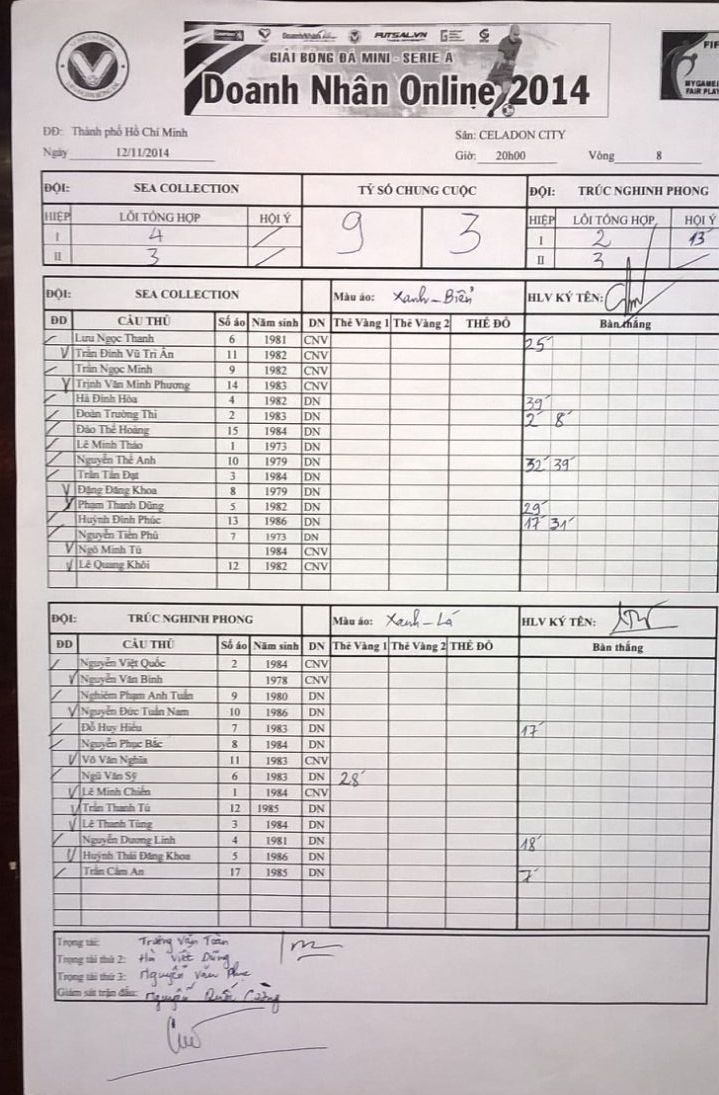 FUTSAL.VN
GIẢI BÓNG ĐÁ MINI - SERIE A
Doanh Nhân Online 2014
MYGAME
FAIR PLAY
ĐĐ: Thành phố Hồ Chí Minh
Sân: CELADON CITY
Ngày 12/11/2014
Giờ: 20h00 Vòng 8
ĐỘI: SEA COLLECTION TỶ SỐ CHUNG CUỘC ĐỘI: TRÚC NGHINH PHONG
HIỆP LỖI TỔNG HỢP HỘI Ý 9 3 HIỆP LỖI TỔNG HỢP HỘI Ý
I 4 I 2 13'
II 3 II 3
ĐỘI: SEA COLLECTION Màu áo: Xanh - Biển HLV KÝ TÊN:
ĐD CẦU THỦ Số áo Năm sinh DN Thẻ Vàng 1 Thẻ Vàng 2 THẺ ĐỎ Bàn thắng
Lưu Ngọc Thanh 6 1981 CNV 25'
Trần Đình Vũ Trí Ân 11 1982 CNV
Trần Ngọc Minh 9 1982 CNV
Trịnh Văn Minh Phương 14 1983 CNV
Hà Đình Hòa 4 1982 DN 39'
Đoàn Trường Thi 2 1983 DN 2' 8'
Đào Thế Hoàng 15 1984 DN
Lê Minh Thảo 1 1973 DN
Nguyễn Thế Anh 10 1979 DN 32' 39'
Trần Tấn Đạt 3 1984 DN
Đặng Đăng Khoa 8 1979 DN
Phạm Thanh Dũng 5 1982 DN 29'
Huỳnh Đình Phúc 13 1986 DN 17' 31'
Nguyễn Tiến Phú 7 1973 DN
Ngô Minh Tú 1984 CNV
Lê Quang Khôi 12 1982 CNV
ĐỘI: TRÚC NGHINH PHONG Màu áo: Xanh - Lá HLV KÝ TÊN:
ĐD CẦU THỦ Số áo Năm sinh DN Thẻ Vàng 1 Thẻ Vàng 2 THẺ ĐỎ Bàn thắng
Nguyễn Việt Quốc 2 1984 CNV
Nguyễn Văn Bình 1978 CNV
Nghiêm Phạm Anh Tuấn 9 1980 DN
Nguyễn Đức Tuấn Nam 10 1986 DN
Đỗ Huy Hiếu 7 1983 DN 17'
Nguyễn Phục Bắc 8 1984 DN
Võ Văn Nghĩa 11 1983 CNV
Ngũ Văn Sỹ 6 1983 DN 28'
Lê Minh Chiến 1 1984 CNV
Trần Thanh Tú 12 1985 DN
Lê Thanh Tùng 3 1984 DN
Nguyễn Dương Linh 4 1981 DN 18'
Huỳnh Thái Đăng Khoa 5 1986 DN
Trần Cẩm An 17 1985 DN 7'
Trọng tài: Trương Văn Toàn
Trọng tài thứ 2: Hà Việt Dũng
Trọng tài thứ 3: Nguyễn Văn
Giám sát trận đấu: Nguyễn Quốc Cường